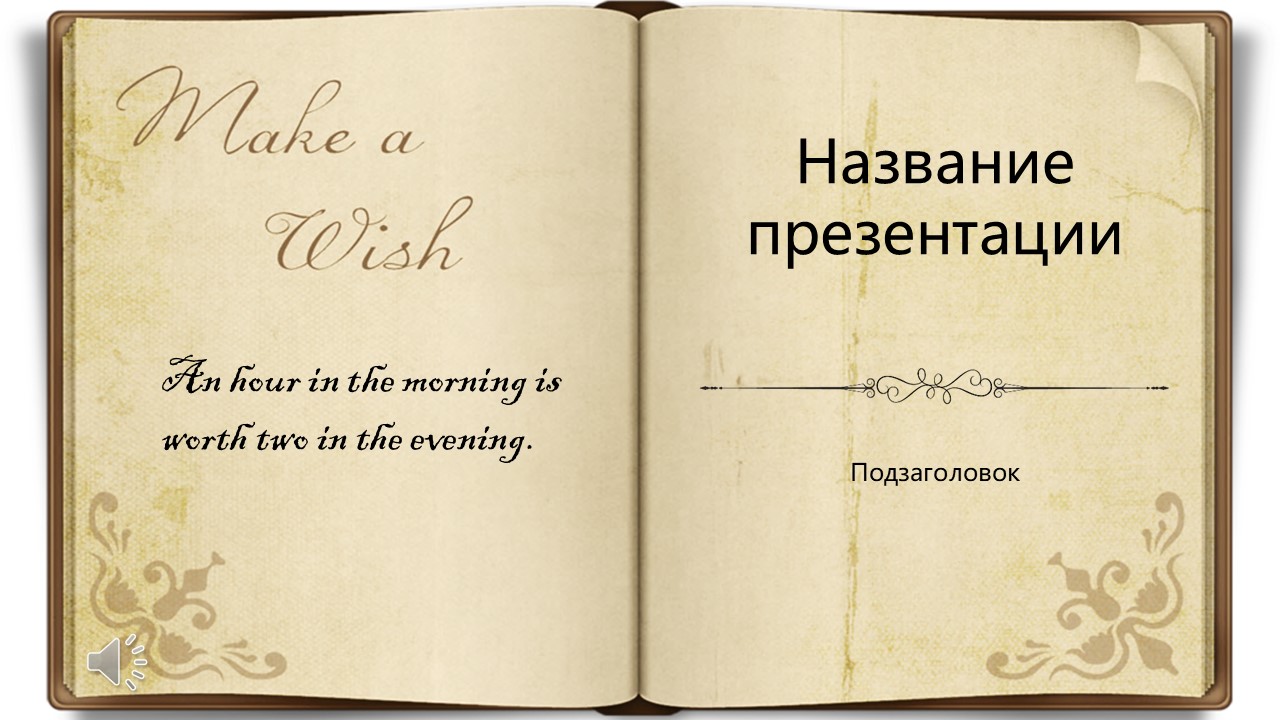 Make a
Wish
An hour in the morning is
worth two in the evening.
Название
презентации
Подзаголовок